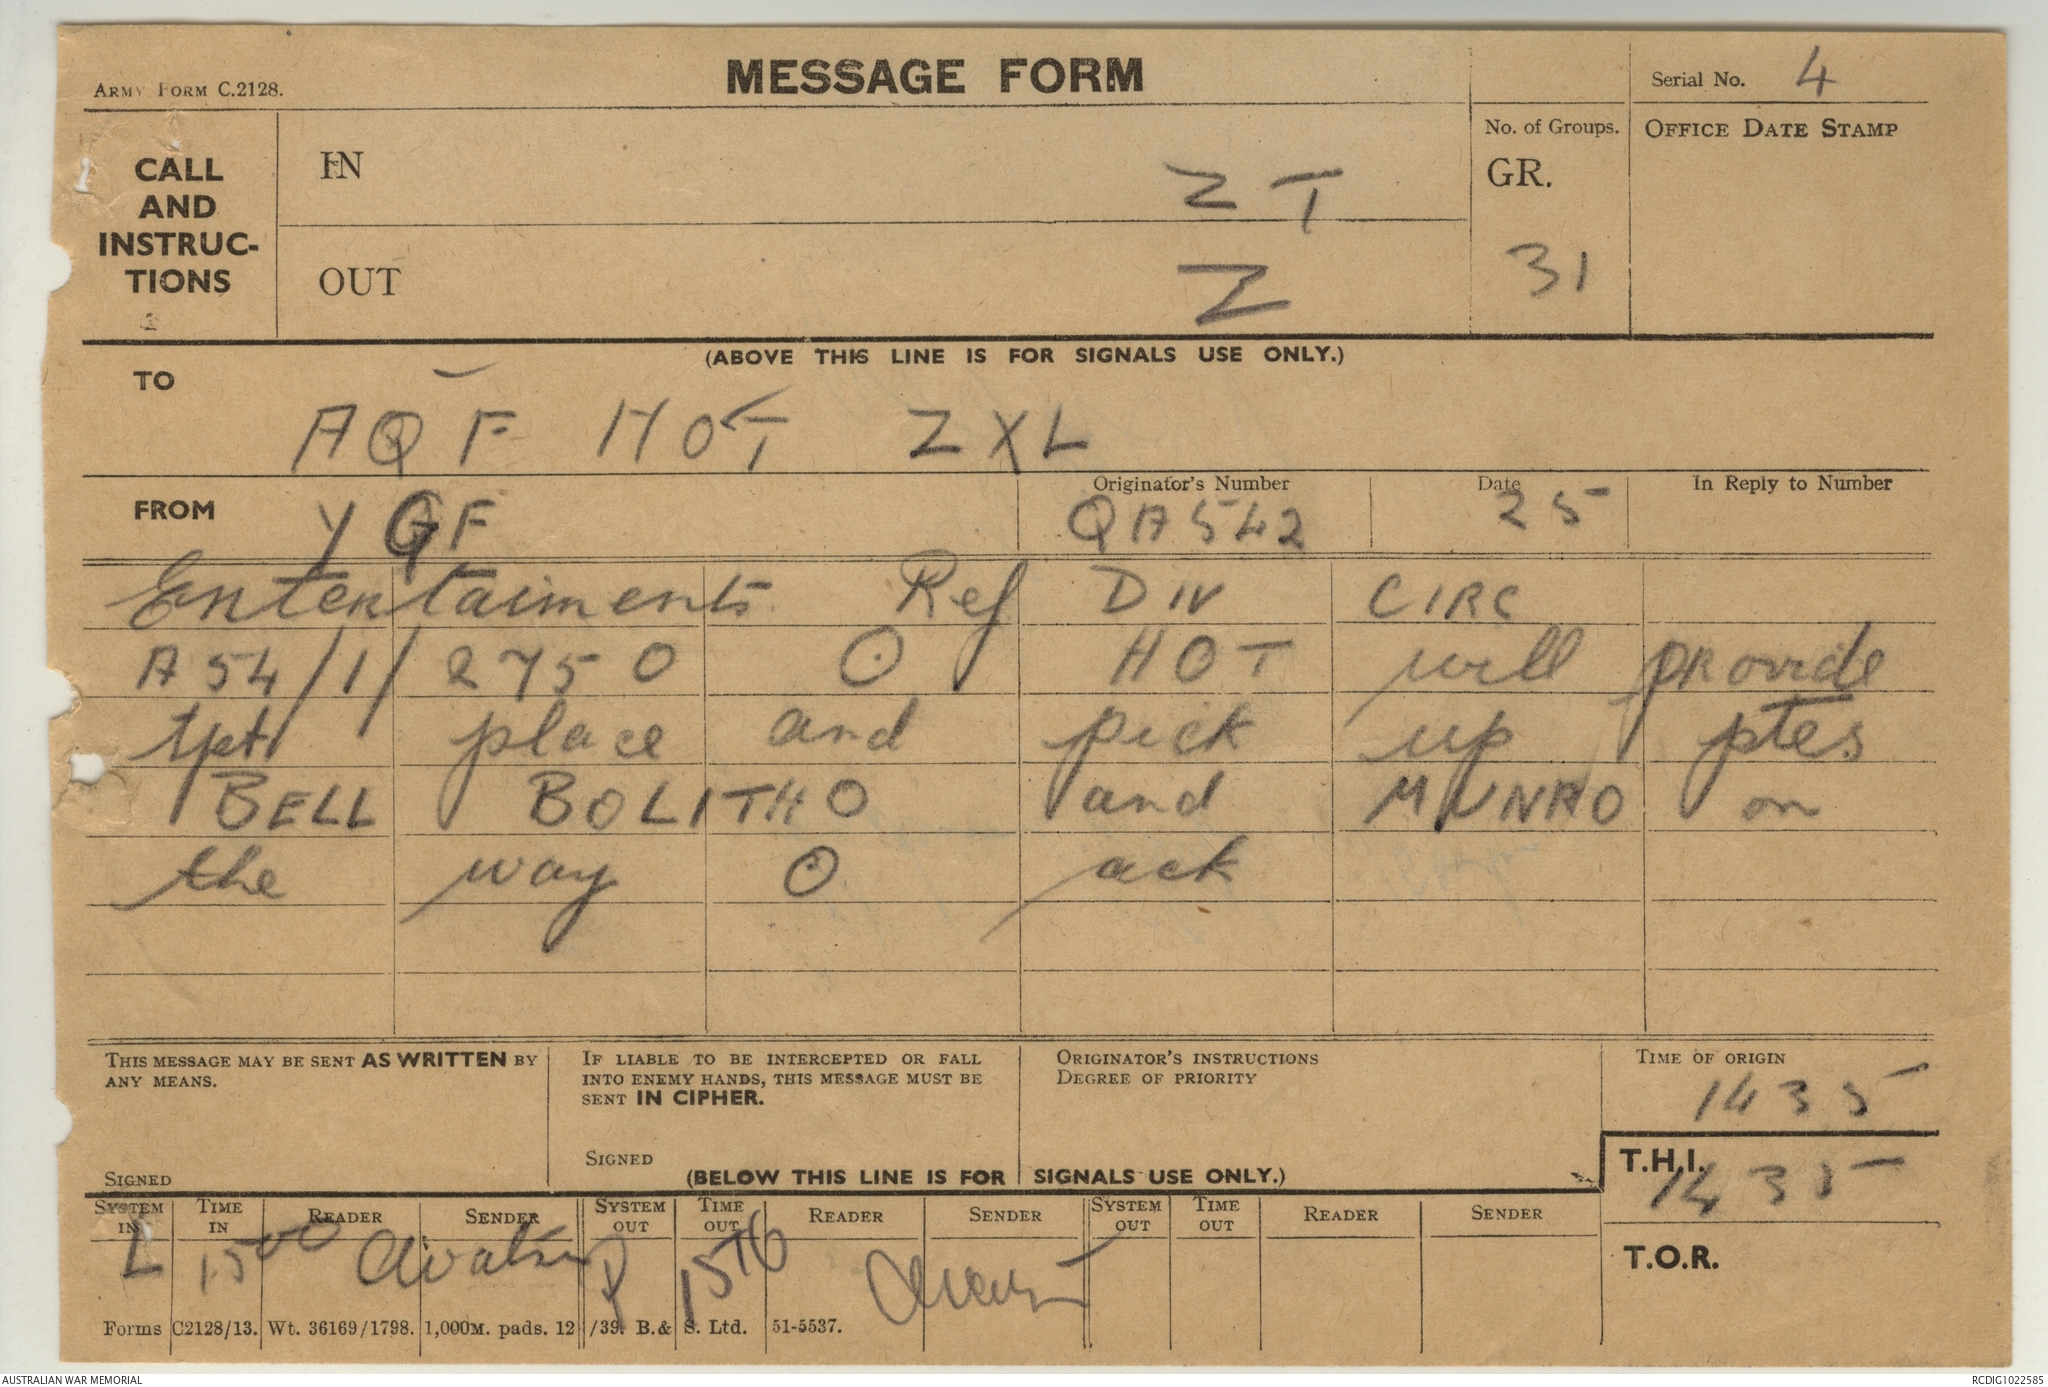 ARMY FORM C.2128.
MESSAGE FORM
Serial No. 4
CALL AND INSTRUC-TIONS
IN
ZT
No. of Groups.
GR.
31
OFFICE DATE STAMP
OUT
Z
(ABOVE THIS LINE IS FOR SIGNALS USE ONLY.)
TO
AQF HOT ZXL
FROM YGF
Originator's Number
QA542
Date
25
In Reply to Number
Entertaiments Ref DIV CIRC
A54/1/2750 O HOT will provide
tpt place and pick up ptes
BELL BOLITHO and MUNRO on
the way O ack
THIS MESSAGE MAY BE SENT AS WRITTEN BY
ANY MEANS.
SIGNED
IF LIABLE TO BE INTERCEPTED OR FALL
INTO ENEMY HANDS, THIS MESSAGE MUST BE
SENT IN CIPHER.
SIGNED
ORIGINATOR'S INSTRUCTIONS
DEGREE OF PRIORITY
TIME OF ORIGIN
1435
(BELOW THIS LINE IS FOR SIGNALS USE ONLY.)
T.H.I.
1435
T.O.R.
SYSTEM IN TIME IN READER SENDER SYSTEM OUT TIME OUT READER SENDER SYSTEM OUT TIME OUT READER SENDER
L 1500 P 1516
Forms C2128/13. Wt. 36169/1798. 1,000M. pads. 12/39. B.& S. Ltd. 51-5537.
AUSTRALIAN WAR MEMORIAL
RCDIG1022585